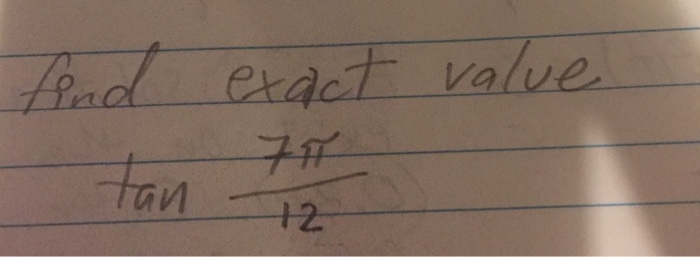 find exact value
tan 7π/12